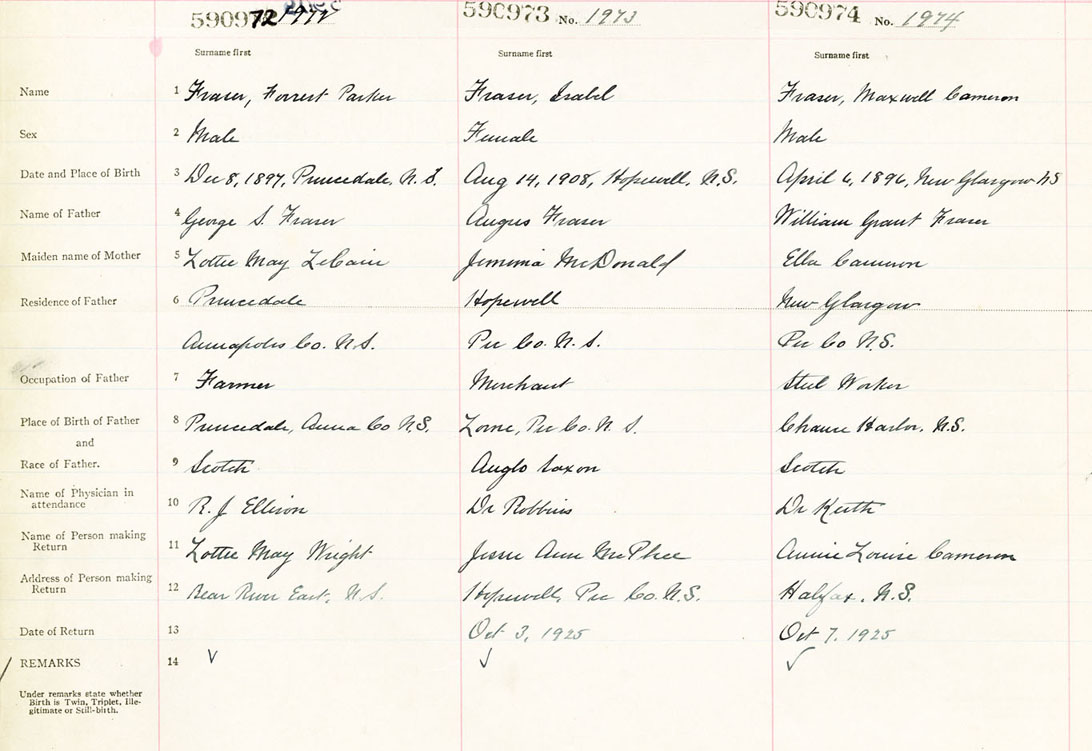 590972 1972 590973 No. 1973 590974 No. 1974
Surname first Surname first Surname first
Name 1 Fraser, Forrest Parker Fraser, Isabel Fraser, Maxwell Cameron
Sex 2 Male Female Male
Date and Place of Birth 3 Dec 8, 1897, Princedale, N.S. Aug 14, 1908, Hopewell, N.S. April 6, 1896, New Glasgow NS
Name of Father 4 George S. Fraser Angus Fraser William Grant Fraser
Maiden name of Mother 5 Lottie May LeCain Jemima McDonald Ella Cameron
Residence of Father 6 Princedale Hopewell New Glasgow
Annapolis Co. N.S. Pic Co. N.S. Pic Co N.S.
Occupation of Father 7 Farmer Merchant Steel Worker
Place of Birth of Father 8 Princedale, Anna Co N.S. Lorne, Pic Co. N.S. Chance Harbor, N.S.
and
Race of Father. 9 Scotch Anglo Saxon Scotch
Name of Physician in
attendance 10 R. J. Ellison Dr Robbins Dr Keith
Name of Person making
Return 11 Lottie May Wright Jessie Ann McPhee Annie Louise Cameron
Address of Person making
Return 12 Bear River East, N.S. Hopewell, Pic Co. N.S. Halifax, N.S.
Date of Return 13 Oct 3, 1925 Oct 7, 1925
REMARKS 14
Under remarks state whether
Birth is Twin, Triplet, Ille-
gitimate or Still-birth.